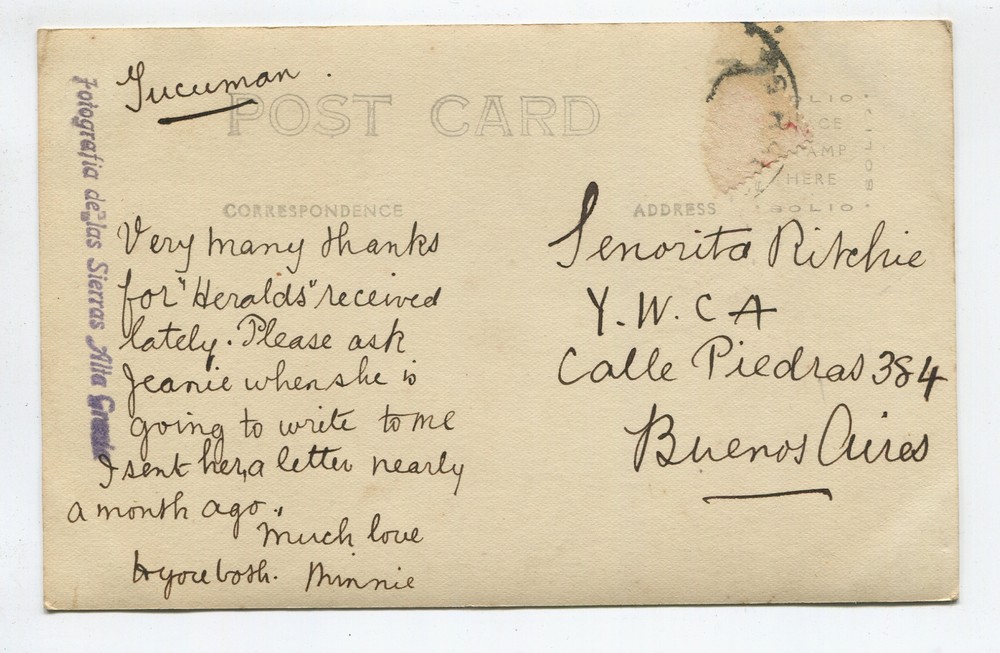 Tucuman.
POST CARD
CORRESPONDENCE
ADDRESS
SOLIO
PLACE
STAMP
HERE
SOLIO
SOLIO
Fotografia de las Sierras Alta Gracia
Very many thanks
for "Heralds" received
lately. Please ask
Jeanie when she is
going to write to me
I sent her, a letter nearly
a month ago.
Much love
to you both. Minnie
Senorita Ritchie
Y.W.C A
Calle Piedras 384
Buenos Aires